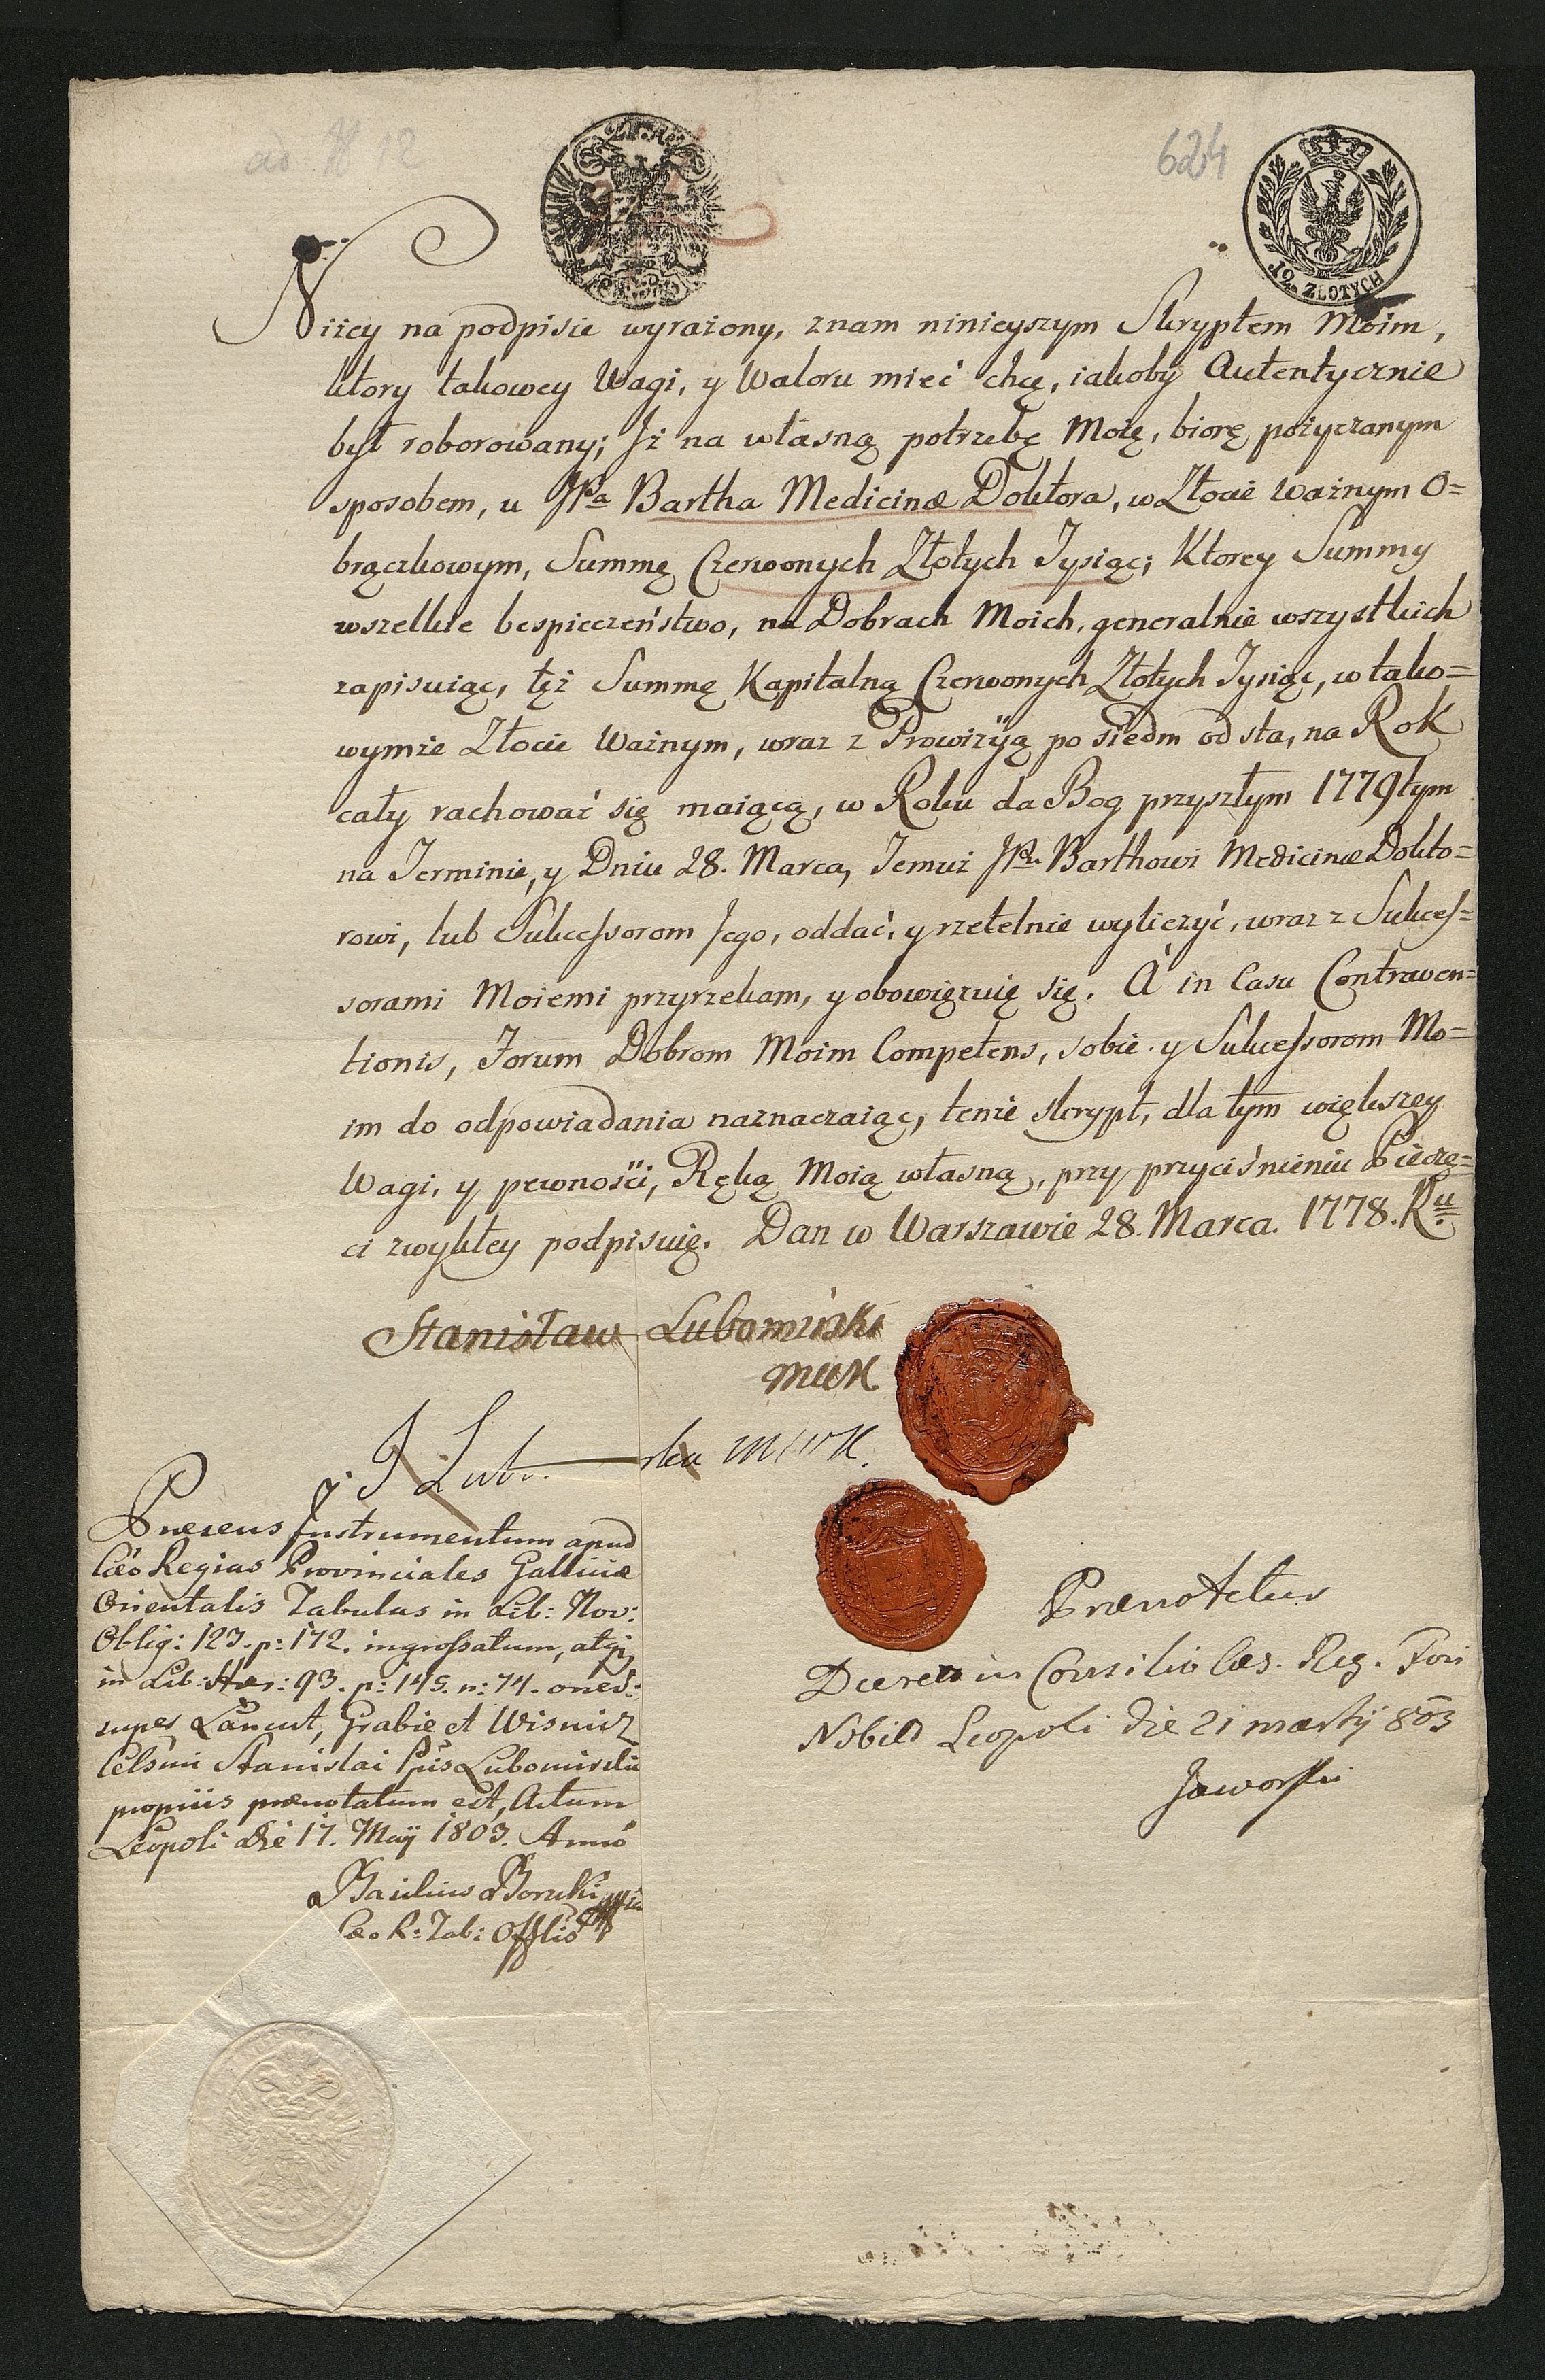 ad N 12
624
10. ZŁOTYCH
Niżey na podpisie wyrażony, znam ninieyszym Skryptem Moim,
ktory takowey Wagi, y Waloru mieć chcę, iakoby Autentycznie
był roborowany; Iż na własną potrzebę Moię, biorę pożyczanym
sposobem, u JPa Bartha Medicinæ Doktora, w Złocie Ważnym O=
brączkowym, Summę Czerwonych Złotych Tysiąc; Ktorey Summy
wszelkie bespieczeństwo, na Dobrach Moich, generalnie wszystkich
zapisuiąc, tęż Summę Kapitalną Czerwonych Złotych Tysiąc, w tako=
wymże Złocie Ważnym, wraz z Prowizÿą po siedm od sta, na Rok
cały rachować się maiącą, w Roku da Bog przyszłym 1779tym
na Terminie, y Dniu 28. Marca, Temuż JPu Barthowi Medicinæ Dokto=
rowi, lub Sukcessorom Jego, oddać, y rzetelnie wyliczyć, wraz z Sukces=
sorami Moiemi przyrzekam, y obowięzuię się. A in Casu Contraven=
tionis, Forum Dobrom Moim Competens, sobie y Sukcessorom Mo=
im do odpowiadania naznaczaiąc, tenże skrypt, dla tym większey
Wagi, y pewności, Ręką Moią własną, przy przyciśnieniu Pieczę=
ci zwykłey podpisuię. Dan w Warszawie 28. Marca. 1778. Ru
Stanisław Lubomirski
MWK
J Lubo. ska MWK.
Præsens Instrumentum apud
Cæo Regias Provinciales Galliciæ
Orientalis Tabulas in Lib: Nov:
Oblig: 127. p: 172. ingrossatum, atq
in Lib: Hær: 93. p: 145. n: 74. oner:
super Łancut, Grabie et Wisnicz
Celsmi Stanislai Ppis Lubomirski
propriis prænotatum est, Actum
Leopoli die 17. Maÿ 1803. Anno
Basilius
Cæo R: Tab: Offlis
Prænotetur
Decreto in Consilio Cæs. Reg. Fori
Nobil Leopoli die 21 martÿ 803
Jaworski